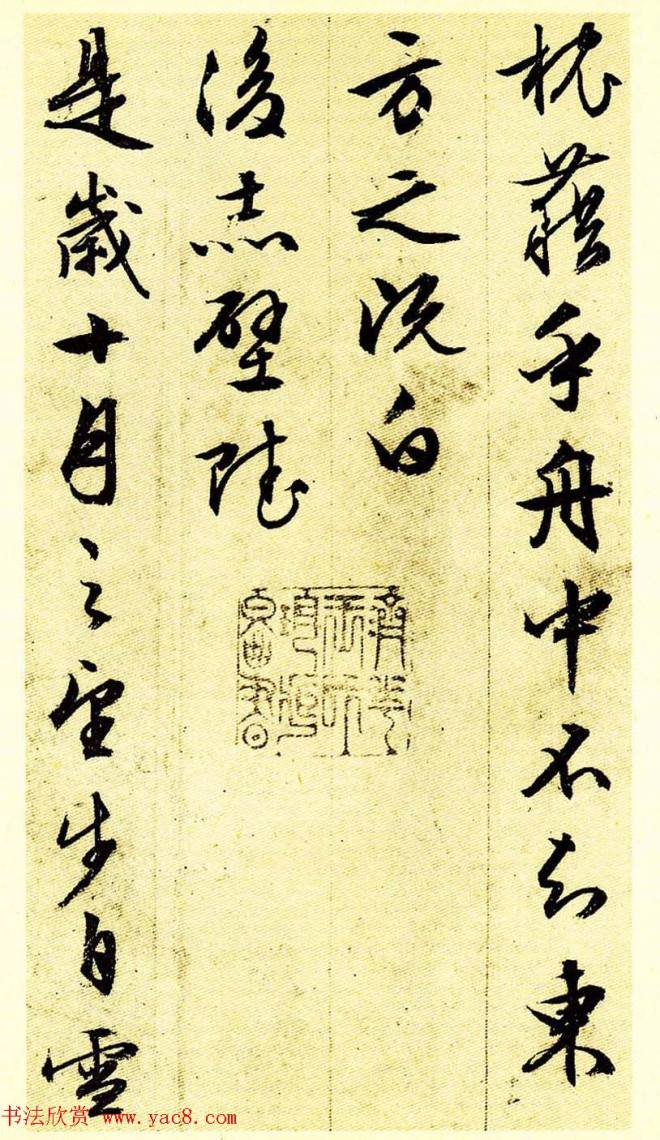 枕藉乎舟中不知東
方之既白
後赤壁賦
是歲十月之望步自雪
书法欣赏 www.yac8.com